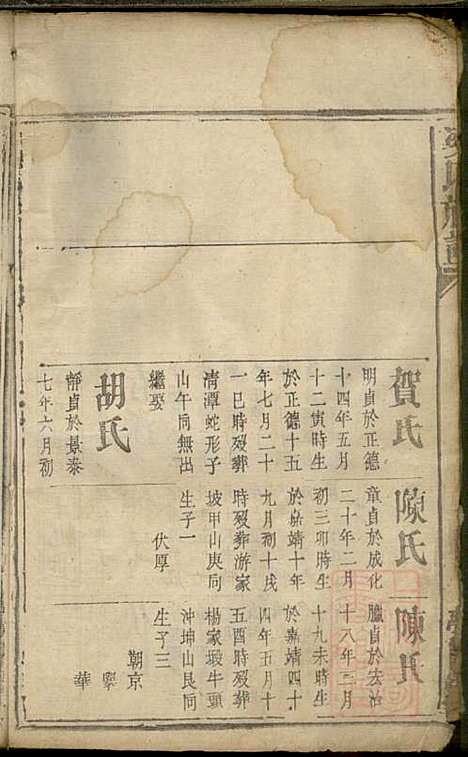 賀氏
明貞於正德
十四年五月
十二寅時生
於正德十五
年七月二十
一巳時歿葬
清潭蛇形子
山午向無出
繼娶
胡氏
靜貞於景泰
七年六月初
陳氏
童貞於成化
二十年二月
初三卯時生
於嘉靖十年
九月初十戌
時歿葬游家
坡甲山庚向
生子一
伏厚
陳氏
臘貞於宏治
十八年二月
十九未時生
於嘉靖四十
四年五月十
五酉時歿葬
楊家塅牛頭
沖坤山艮向
生子三
朝京
寧
華